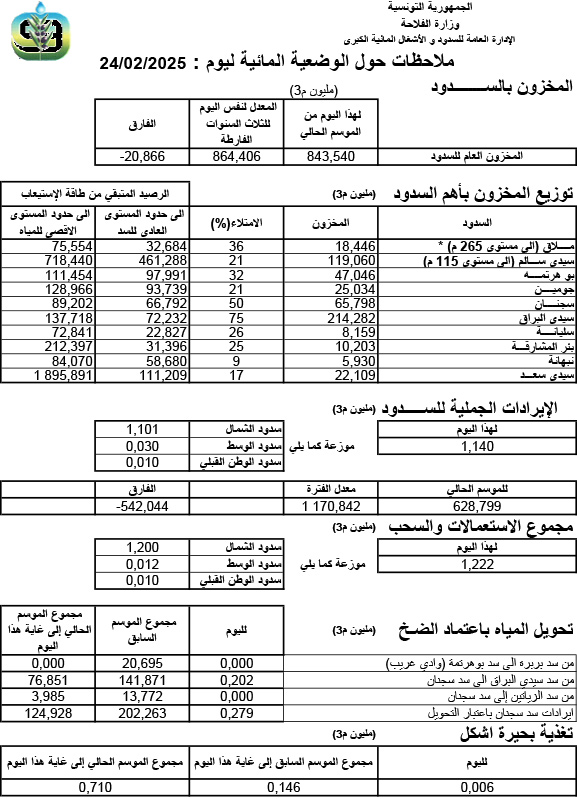 الجمهورية التونسية
وزارة الفلاحة
الإدارة العامة للسدود و الأشغال المائية الكبرى
ملاحظات حول الوضعية المائية ليوم : 24/02/2025
المخزون بالســــدود (مليون م3)
لهذا اليوم من الموسم الحالي | المعدل لنفس اليوم للثلاث السنوات الفارطة | الفارق
المخزون العام للسدود | 843,540 | 864,406 | -20,866
توزيع المخزون بأهم السدود (مليون م3) | الرصيد المتبقي من طاقة الإستيعاب
السدود | المخزون | الامتلاء(%) | الى حدود المستوى العادي للسد | الى حدود المستوى الاقصى للمياه
مــلاق (الى مستوى 265 م) * | 18,446 | 36 | 32,684 | 75,554
سيدي ســالم (الى مستوى 115 م) | 119,060 | 21 | 461,288 | 718,440
بو هرتمــة | 47,046 | 32 | 97,991 | 111,454
جوميــن | 25,034 | 21 | 93,739 | 128,966
سجنــان | 65,798 | 50 | 66,792 | 89,202
سيدي البراق | 214,282 | 75 | 72,232 | 137,718
سليانــة | 8,159 | 26 | 22,827 | 72,841
بئر المشارقــة | 10,203 | 25 | 31,396 | 212,397
نبهانة | 5,930 | 9 | 58,680 | 84,070
سيدي سعــد | 22,109 | 17 | 111,209 | 1 895,891
الإيرادات الجملية للســــدود (مليون م3)
لهذا اليوم | سدود الشمال | 1,101
1,140 | موزعة كما يلي | سدود الوسط | 0,030
سدود الوطن القبلي | 0,010
للموسم الحالي | معدل الفترة | الفارق
628,799 | 1 170,842 | -542,044
مجموع الاستعمالات والسحب (مليون م3)
لهذا اليوم | سدود الشمال | 1,200
1,222 | موزعة كما يلي | سدود الوسط | 0,012
سدود الوطن القبلي | 0,010
تحويل المياه باعتماد الضخ (مليون م3) | لليوم | مجموع الموسم السابق | مجموع الموسم الحالي إلى غاية هذا اليوم
من سد بربرة الى سد بوهرتمة (وادي غريب) | 0,000 | 20,695 | 0,000
من سد سيدي البراق الى سد سجنان | 0,202 | 141,871 | 76,851
من سد الزياتين إلى سد سجنان | 0,000 | 13,772 | 3,985
ايرادات سد سجنان باعتبار التحويل | 0,279 | 202,263 | 124,928
تغذية بحيرة اشكل (مليون م3)
لليوم | مجموع الموسم السابق إلى غاية هذا اليوم | مجموع الموسم الحالي إلى غاية هذا اليوم
0,006 | 0,146 | 0,710